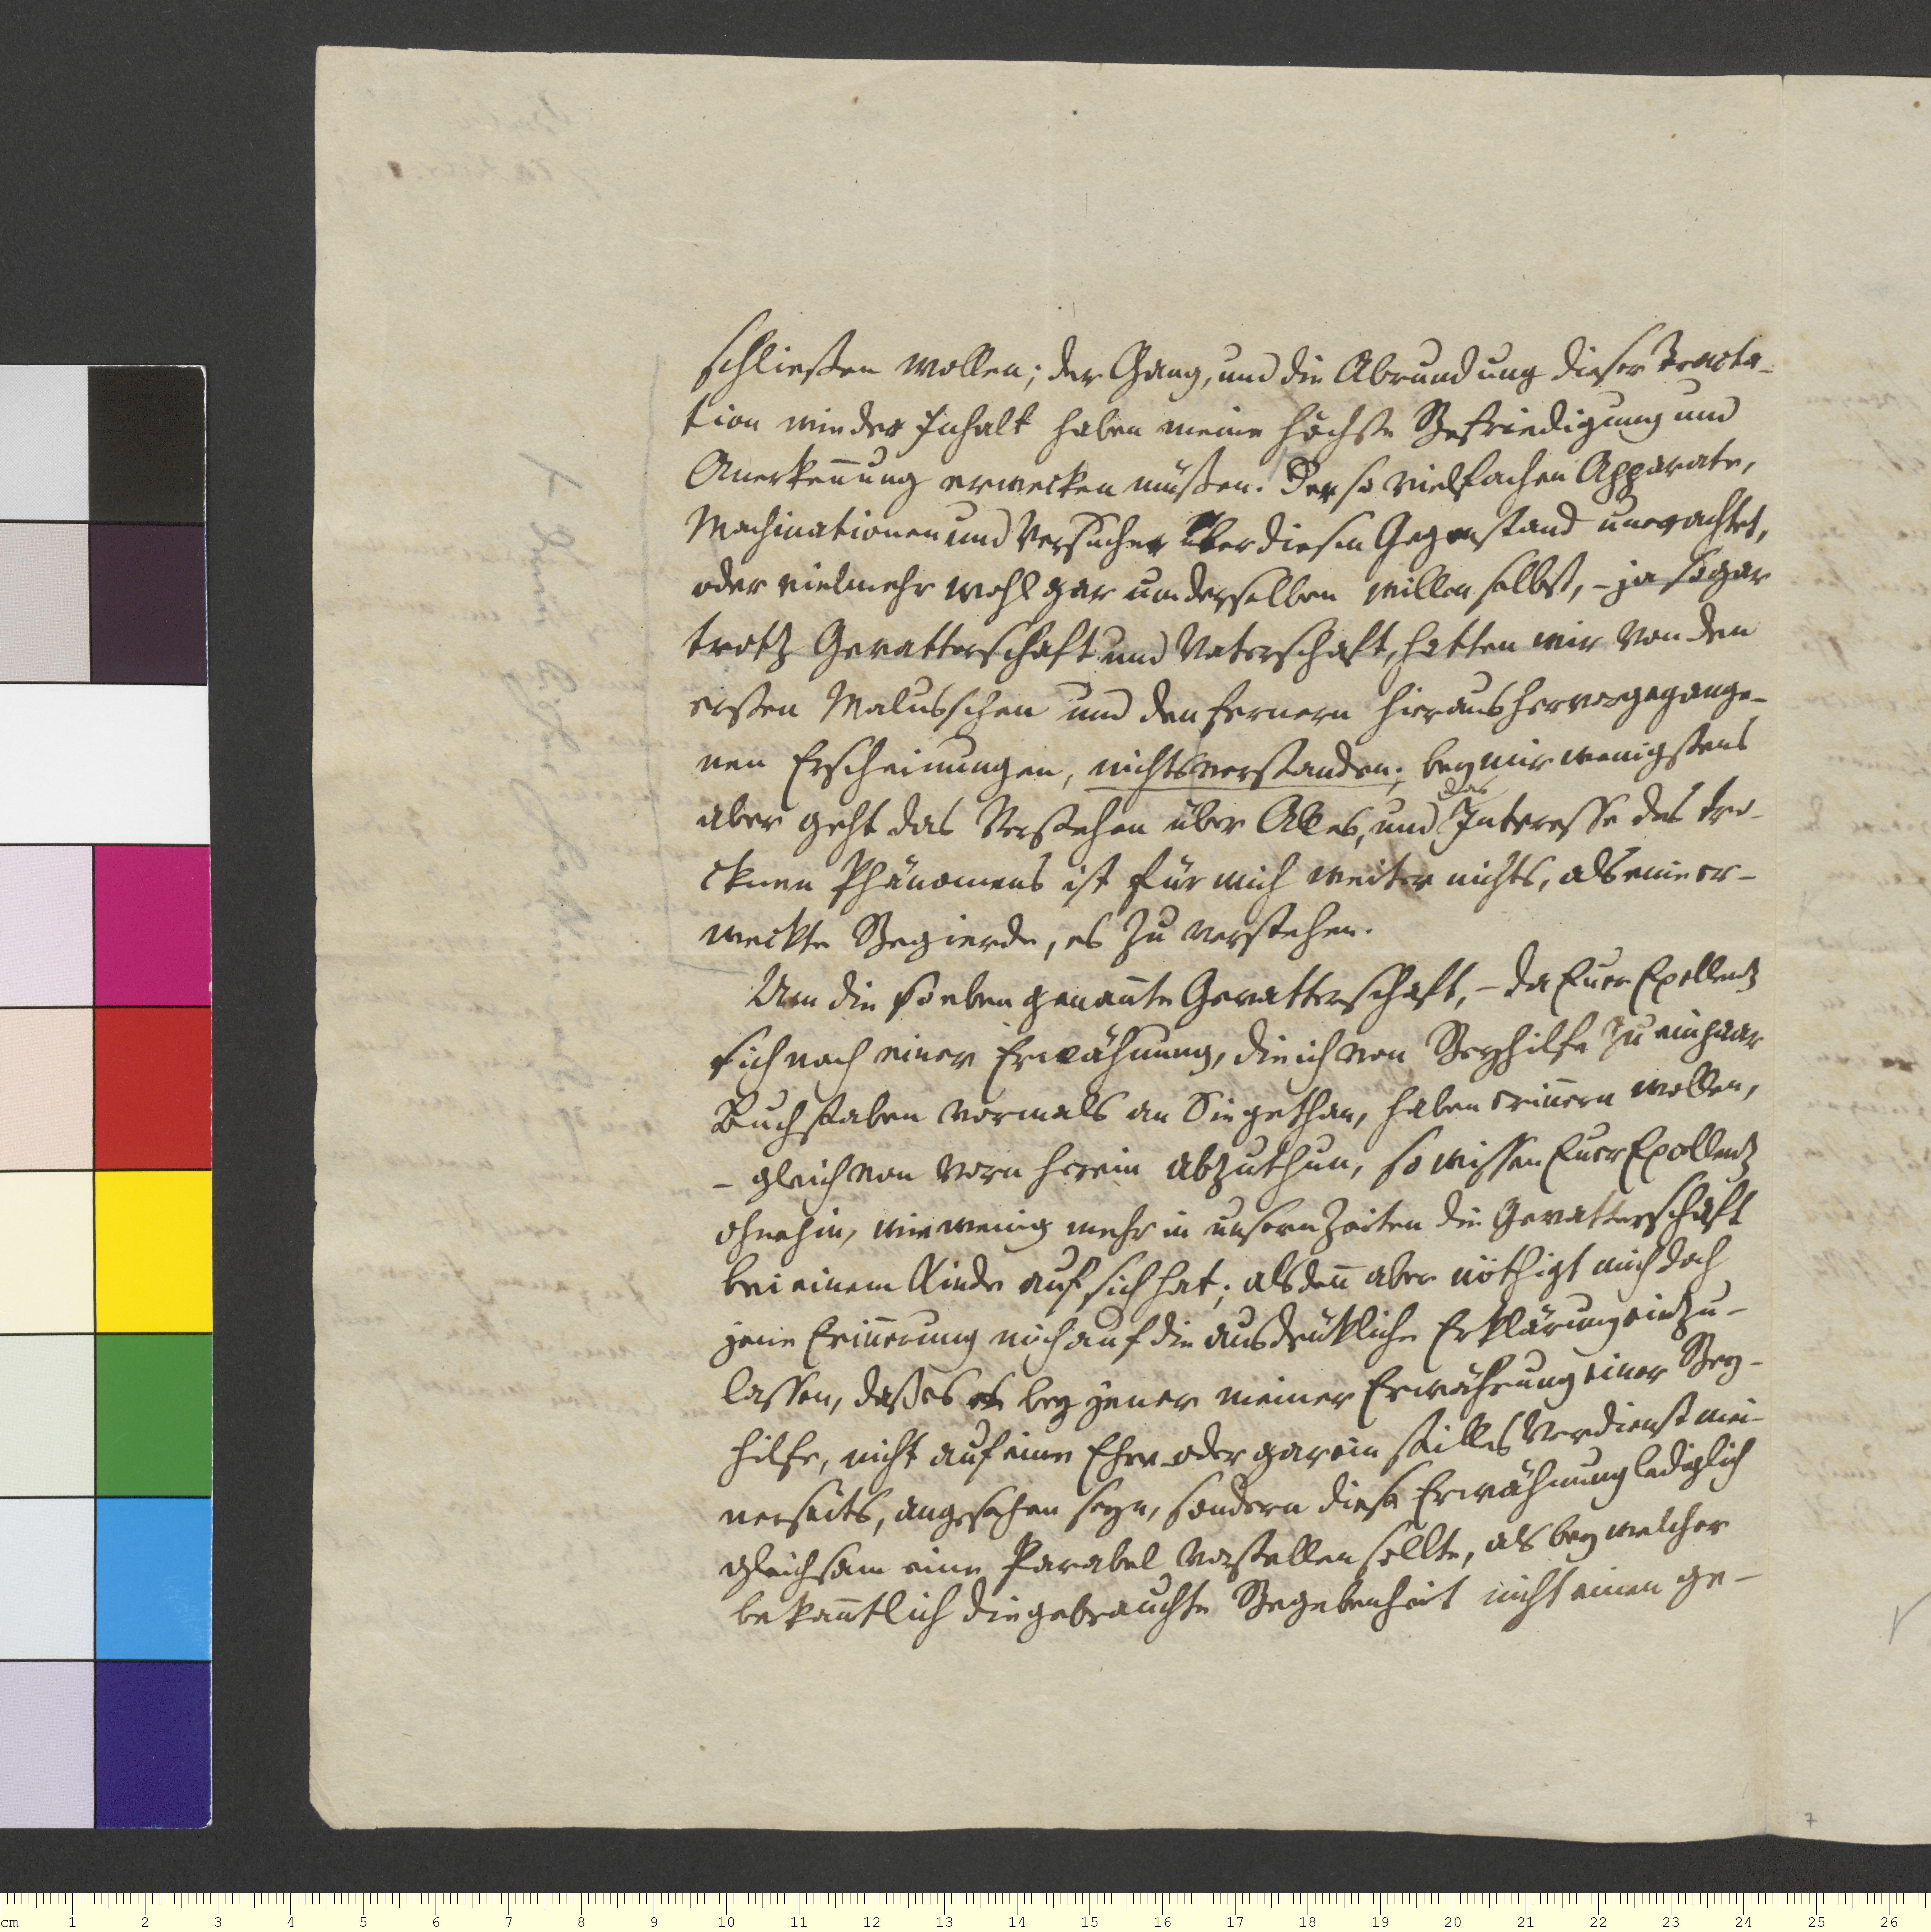 schließen wollen; der Gang, und die Abrundung dieser Tracta-
tion wie der Inhalt haben meine höchste Befriedigung und
Anerkeñung erwecken müßen. Der so vielfachen Apparate,
Machinationen und Versuche über diesen Gegenstand unerachtet,
oder vielmehr wohl gar um derselben willen selbst, – ja sogar
trotz Gevatterschaft und Vaterschaft, hatten wir von den
ersten Malusschen und den fernern hieraus hervorgegange-
nen Erscheinungen, nichts verstanden; bey mir wenigstens
aber geht das Verstehen über Alles, und das Interesse des tro-
cknen Phänomens ist für mich weiter nichts, als eine er-
weckte Begierde, es zu verstehen.
Um die so eben genañte Gevatterschaft, – da Euer Excellenz
sich nach einer Erwähnung, die ich von Beyhilfe zu ein paar
Buchstaben vormals an Sie gethan, haben eriñern wollen,
– gleich von vorn herein abzuthun, so wissen Euer Excellenz
ohnehin, wie wenig mehr in unsern Zeiten die Gevatterschaft
bei einem Kinde auf sich hat; alsdeñ aber nöthigt mich doch
jene Eriñerung mich auf die ausdrükliche Erklärung einzu-
lassen, daß es bey jener meiner Erwähnung einer Bey-
hilfe, nicht auf eine Ehre oder gar ein stilles Verdienst mei-
nerseits, angesehen seyn, sondern diese Erwähnung lediglich
gleichsam eine Parabel vorstellen sollte, als bey welcher
bekañtlich die gebrauchte Begebenheit nicht einen ge-
7
cm 1 2 3 4 5 6 7 8 9 10 11 12 13 14 15 16 17 18 19 20 21 22 23 24 25 26